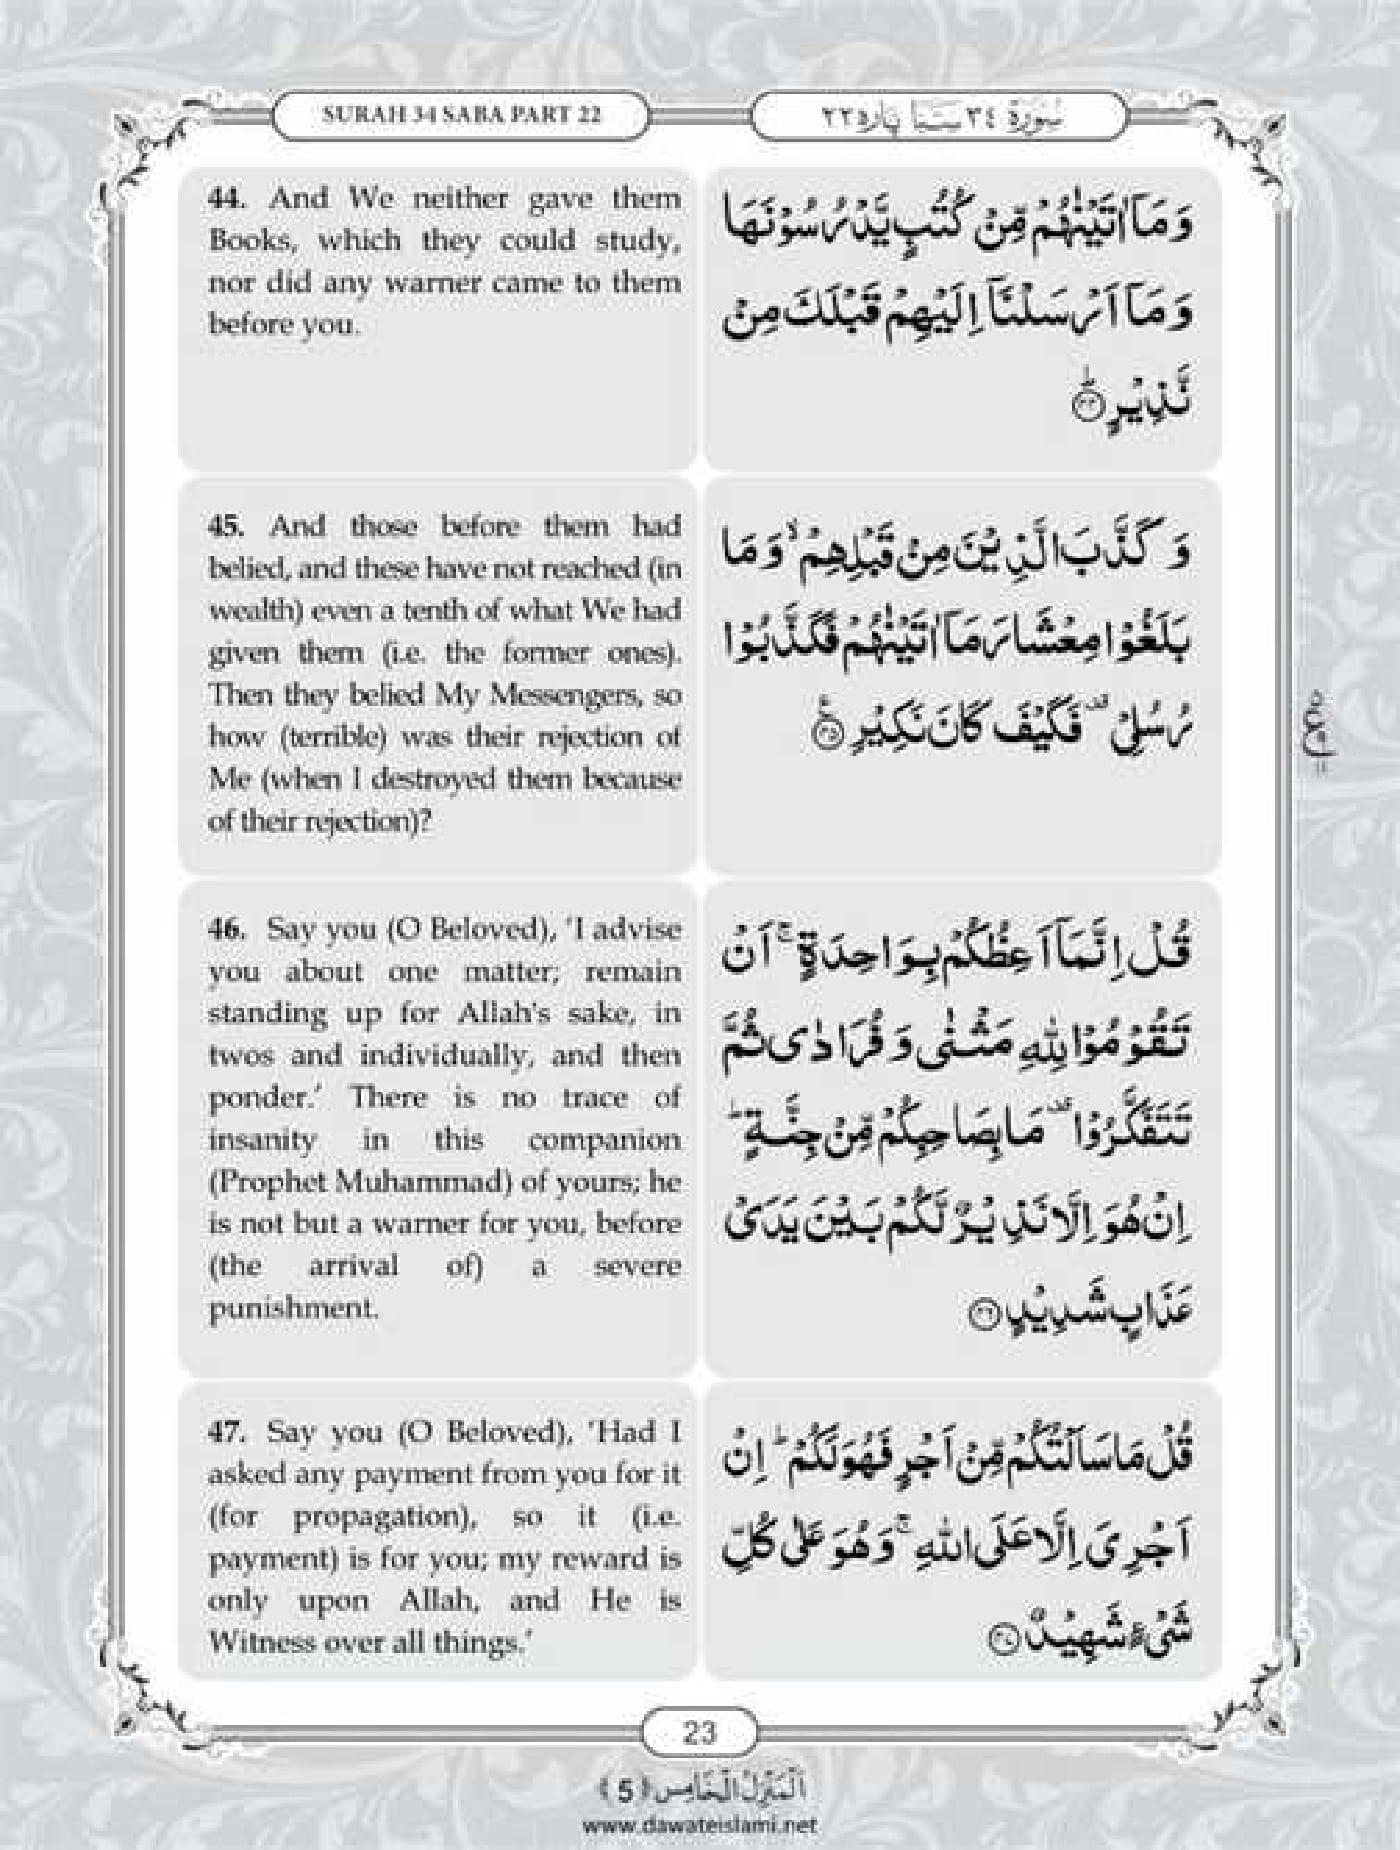 SURAH 34 SABA PART 22
سُوْرَةُ ٣٤ سَبَا پارہ٢٢
44. And We neither gave them
Books, which they could study,
nor did any warner came to them
before you.
وَ مَاۤ اٰتَیْنٰهُمْ مِّنْ كُتُبٍ یَّدْرُسُوْنَهَا
وَ مَاۤ اَرْسَلْنَاۤ اِلَیْهِمْ قَبْلَكَ مِنْ
نَّذِیْرٍؕ۝۴۴
45. And those before them had
belied, and these have not reached (in
wealth) even a tenth of what We had
given them (i.e. the former ones).
Then they belied My Messengers, so
how (terrible) was their rejection of
Me (when I destroyed them because
of their rejection)?
وَ كَذَّبَ الَّذِیْنَ مِنْ قَبْلِهِمْۙ وَ مَا
بَلَغُوْا مِعْشَارَ مَاۤ اٰتَیْنٰهُمْ فَكَذَّبُوْا
رُسُلِیْ۫ فَكَیْفَ كَانَ نَكِیْرِ۠۝۴۵
46. Say you (O Beloved), ‘I advise
you about one matter; remain
standing up for Allah's sake, in
twos and individually, and then
ponder.’ There is no trace of
insanity in this companion
(Prophet Muhammad) of yours; he
is not but a warner for you, before
(the arrival of) a severe
punishment.
قُلْ اِنَّمَاۤ اَعِظُكُمْ بِوَاحِدَةٍۚ اَنْ
تَقُوْمُوْا لِلّٰهِ مَثْنٰى وَ فُرَادٰى ثُمَّ
تَتَفَكَّرُوْا۫ مَا بِصَاحِبِكُمْ مِّنْ جِنَّةٍؕ
اِنْ هُوَ اِلَّا نَذِیْرٌ لَّكُمْ بَیْنَ یَدَیْ
عَذَابٍ شَدِیْدٍ۝۴۶
47. Say you (O Beloved), ‘Had I
asked any payment from you for it
(for propagation), so it (i.e.
payment) is for you; my reward is
only upon Allah, and He is
Witness over all things.’
قُلْ مَا سَاَلْتُكُمْ مِّنْ اَجْرٍ فَهُوَ لَكُمْؕ اِنْ
اَجْرِیَ اِلَّا عَلَى اللّٰهِۚ وَ هُوَ عَلٰى كُلِّ
شَیْءٍ شَهِیْدٌ۝۴۷
23
اَلْمَنْزِلُ الْخَامِس ﴿5﴾
www.dawateislami.net